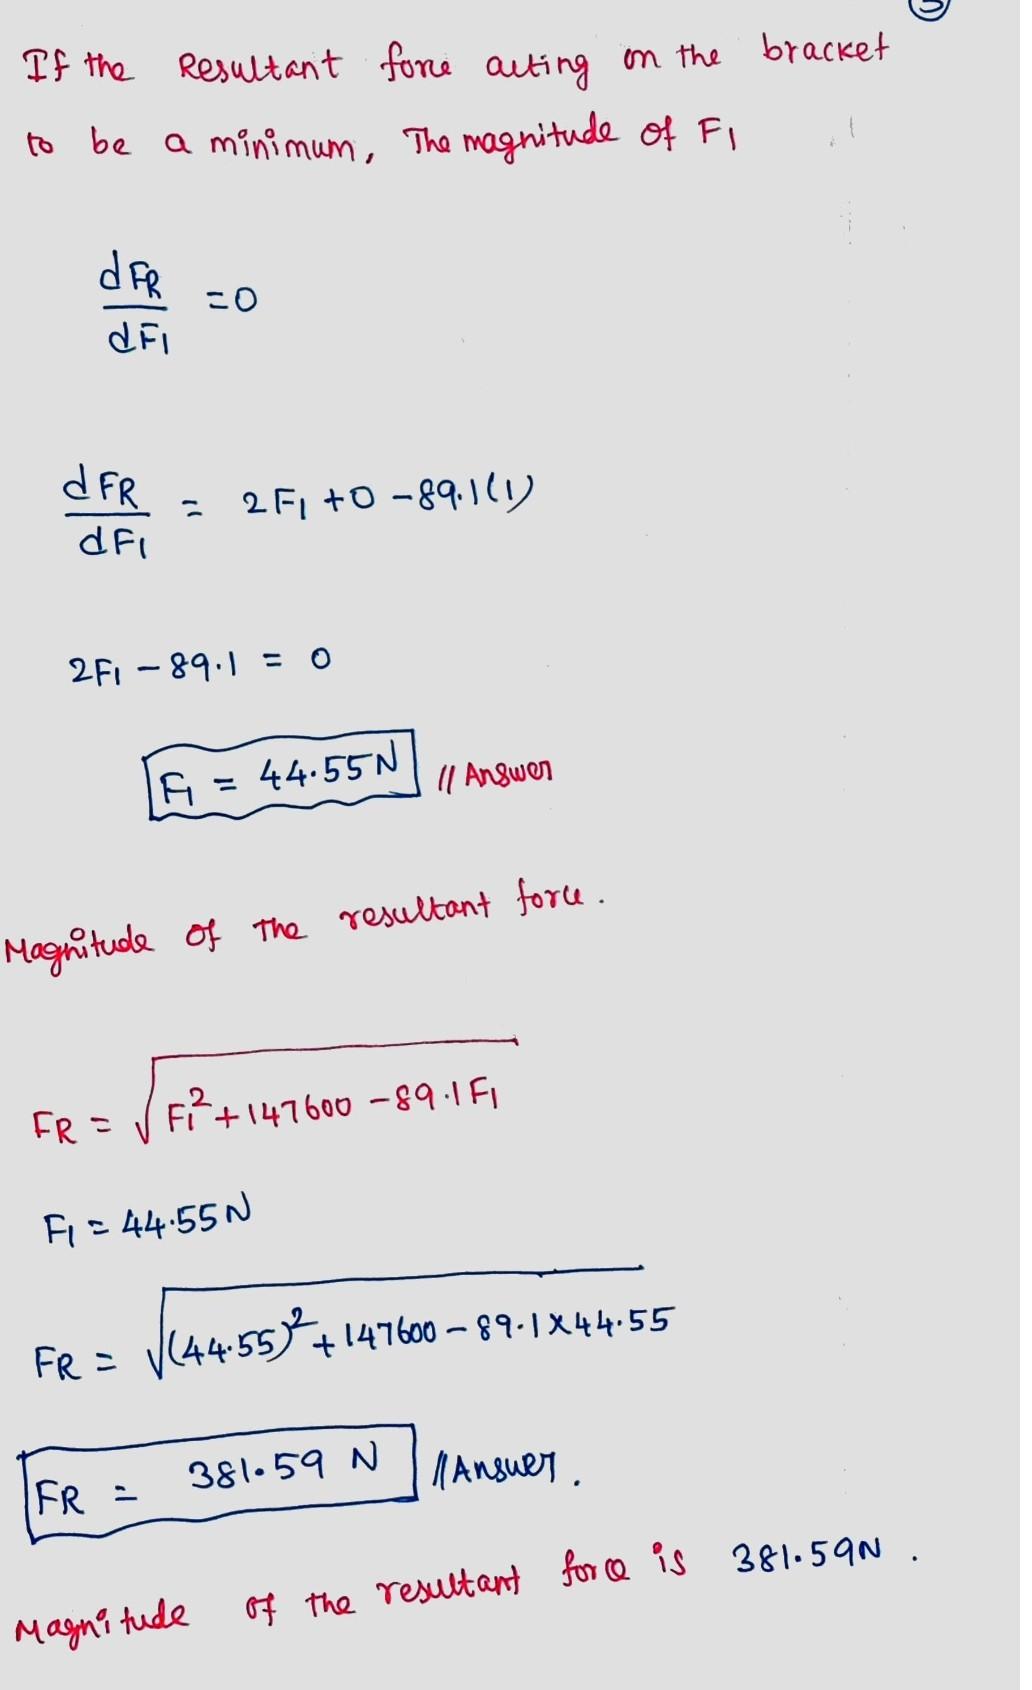 3
If the Resultant force acting on the bracket
to be a minimum, The magnitude of F1
dFR/dF1 =0
dFR/dF1 = 2F1 +0 -89.1(1)
2F1 - 89.1 = 0
F1 = 44.55N // Answer
Magnitude of The resultant force.
FR = √F1²+147600 -89.1F1
F1 = 44.55N
FR = √(44.55)²+147600-89.1x44.55
FR = 381.59 N //Answer.
Magnitude of the resultant force is 381.59N.